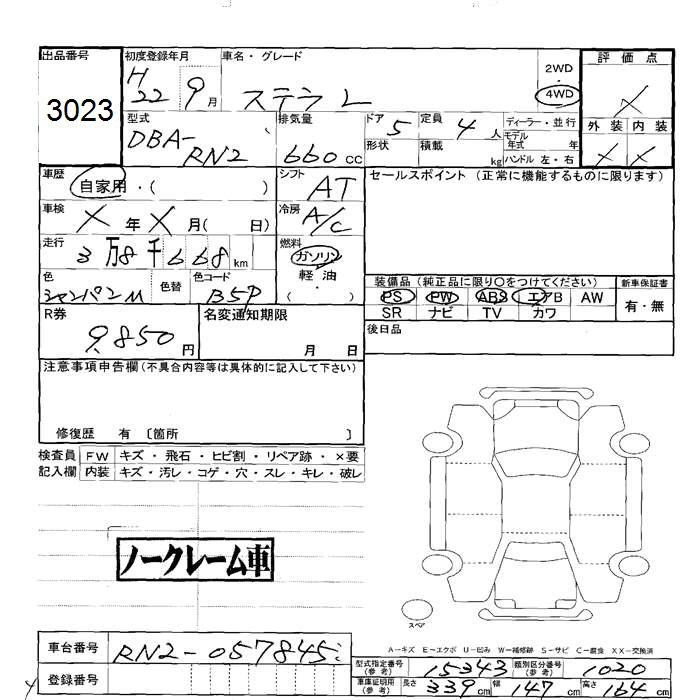 出品番号 初度登録年月 車名・グレード 2WD・4WD 評価点
3023 H22 9月 ステラ L ×
型式 排気量 ドア 定員 ディーラー・並行 外装 内装
DBA-RN2 660cc 5 4人 モデル年式 年 × ×
形状 積載 kg ハンドル 左・右
車歴 シフト セールスポイント (正常に機能するものに限ります)
自家用・( ) AT
車検 冷房
× 年 × 月( 日) A/C
走行 燃料
3万8千668km ガソリン
軽油
( ・ )
色 色替 色コード 装備品 (純正品に限り○をつけてください) 新車保証書
シャンパンM B5P PS PW ABS エアB AW 有・無
SR ナビ TV カワ
R券 名変通知期限 後日品
9,850円 月 日
注意事項申告欄(不具合内容等は具体的に記入して下さい)
修復歴 有 〔箇所 〕
検査員 FW キズ・飛石・ヒビ割・リペア跡・×要
記入欄 内装 キズ・汚レ・コゲ・穴・スレ・キレ・破レ
ノークレーム車
スペア
A-キズ E-エクボ U-凹み W-補修跡 S-サビ C-腐食 XX-交換済
車台番号 RN2-057845
登録番号
型式指定番号(参考) 15343 類別区分番号(参考) 1020
車庫証明用(参考) 長さ 339cm 幅 147cm 高さ 164cm